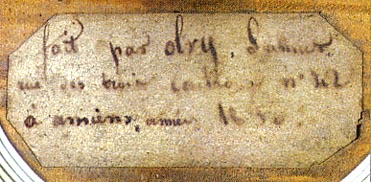 fait par olry,
rue des trois cailloux n° 42
à amiens, année 1850.